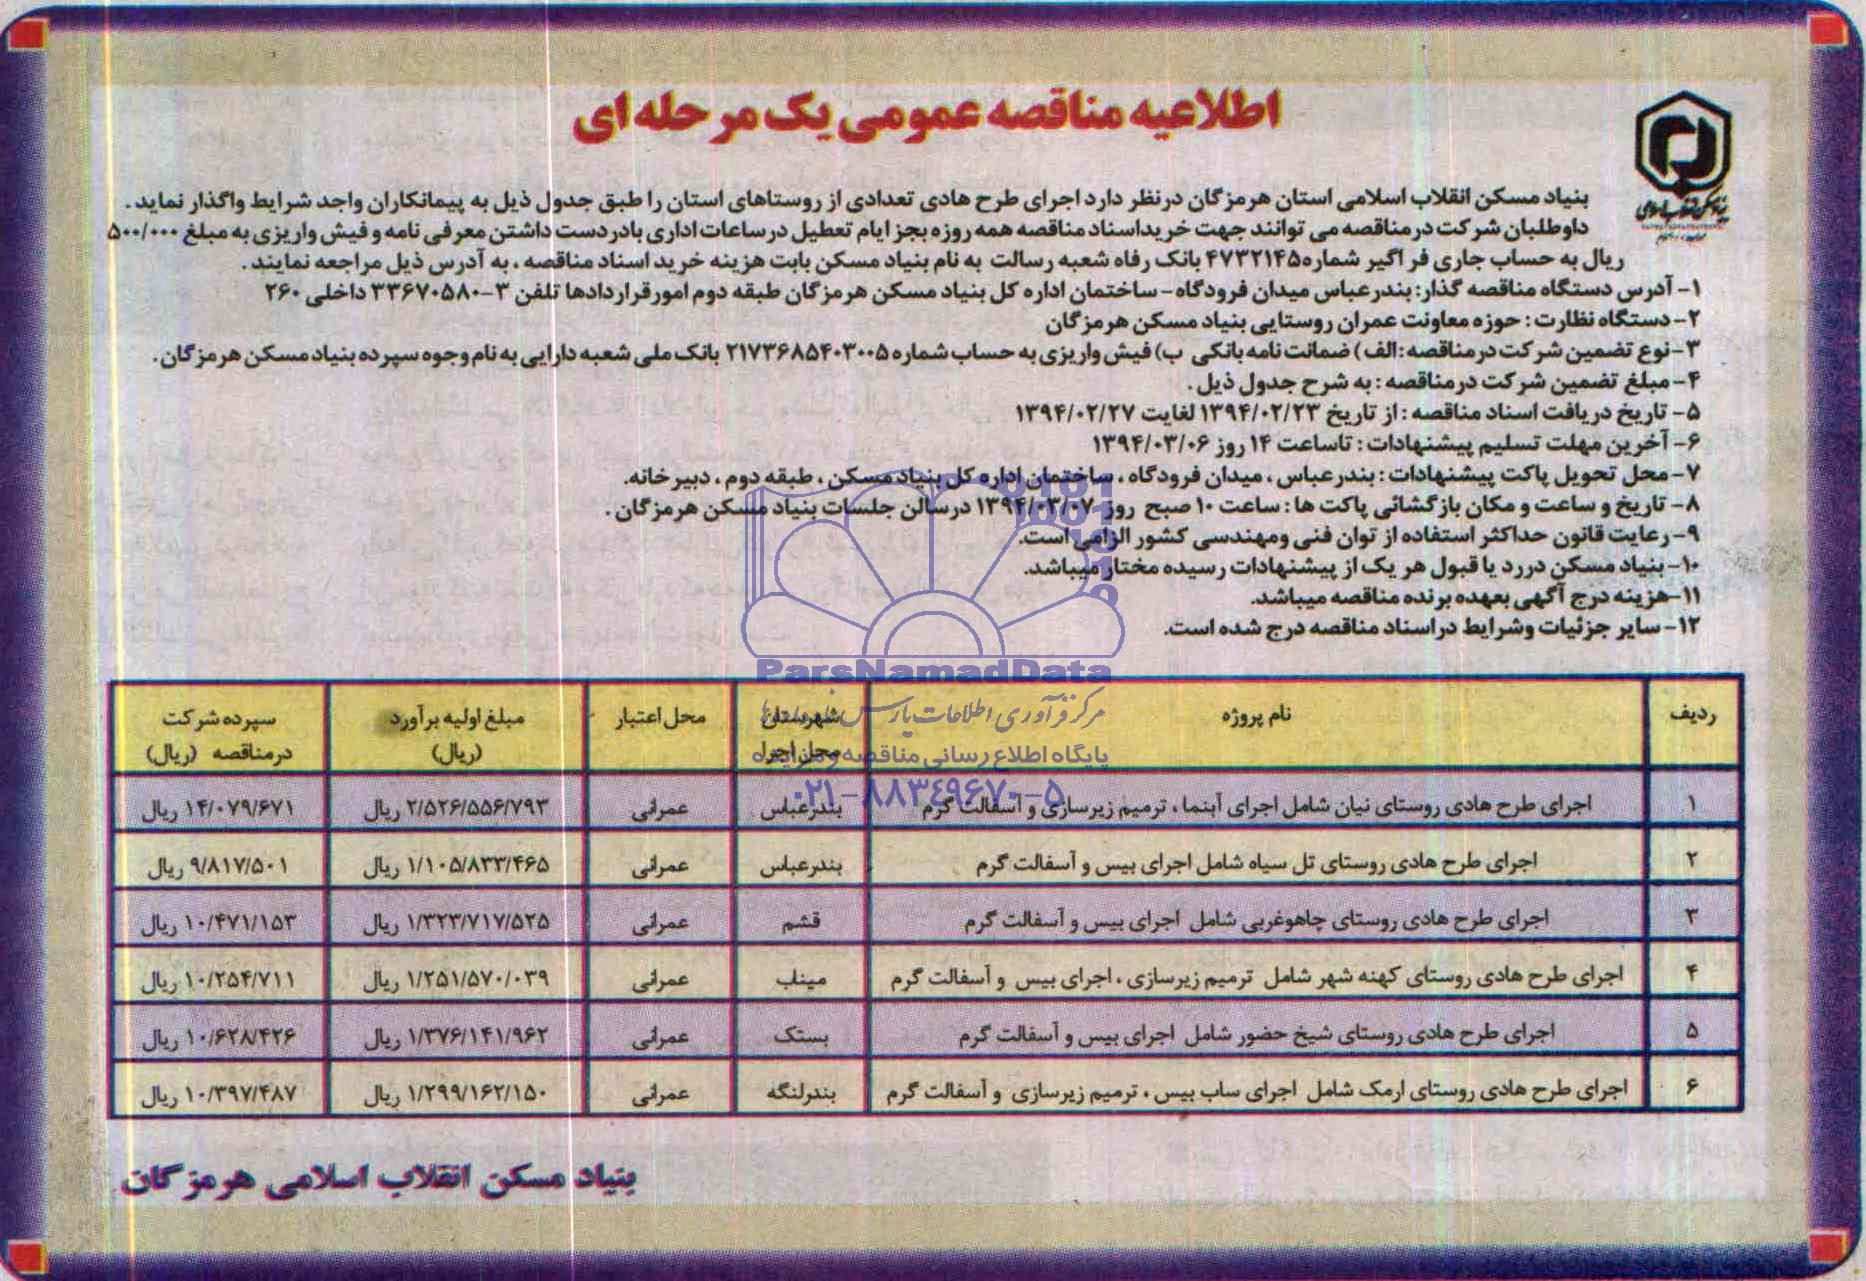 اطلاعیه مناقصه عمومی یک مرحله ای
بنیاد مسکن انقلاب اسلامی
بنیاد مسکن انقلاب اسلامی استان هرمزگان درنظر دارد اجرای طرح هادی تعدادی از روستاهای استان را طبق جدول ذیل به پیمانکاران واجد شرایط واگذار نماید .
داوطلبان شرکت درمناقصه می توانند جهت خریداسناد مناقصه همه روزه بجز ایام تعطیل درساعات اداری بادردست داشتن معرفی نامه و فیش واریزی به مبلغ ۵۰۰/۰۰۰
ریال به حساب جاری فراگیر شماره۴۷۳۲۱۴۵ بانک رفاه شعبه رسالت به نام بنیاد مسکن بابت هزینه خرید اسناد مناقصه ، به آدرس ذیل مراجعه نمایند .
۱- آدرس دستگاه مناقصه گذار: بندرعباس میدان فرودگاه – ساختمان اداره کل بنیاد مسکن هرمزگان طبقه دوم امورقراردادها تلفن ۳-۳۳۶۷۰۵۸۰ داخلی ۲۶۰
۲- دستگاه نظارت : حوزه معاونت عمران روستایی بنیاد مسکن هرمزگان
۳- نوع تضمین شرکت درمناقصه: الف) ضمانت نامه بانکی ب) فیش واریزی به حساب شماره ۲۱۷۳۶۸۵۴۰۳۰۰۵ بانک ملی شعبه دارایی به نام وجوه سپرده بنیاد مسکن هرمزگان .
۴- مبلغ تضمین شرکت درمناقصه : به شرح جدول ذیل .
۵- تاریخ دریافت اسناد مناقصه : از تاریخ ۱۳۹۴/۰۲/۲۳ لغایت ۱۳۹۴/۰۲/۲۷
۶- آخرین مهلت تسلیم پیشنهادات : تاساعت ۱۴ روز ۱۳۹۴/۰۳/۰۶
۷- محل تحویل پاکت پیشنهادات : بندرعباس ، میدان فرودگاه ، ساختمان اداره کل بنیاد مسکن ، طبقه دوم ، دبیرخانه.
۸- تاریخ و ساعت و مکان بازگشائی پاکت ها : ساعت ۱۰ صبح روز ۱۳۹۴/۰۳/۰۷ درسالن جلسات بنیاد مسکن هرمزگان .
۹- رعایت قانون حداکثر استفاده از توان فنی ومهندسی کشور الزامی است.
۱۰- بنیاد مسکن دررد یا قبول هر یک از پیشنهادات رسیده مختار میباشد.
۱۱- هزینه درج آگهی بعهده برنده مناقصه میباشد.
۱۲- سایر جزئیات وشرایط دراسناد مناقصه درج شده است.
ParsNamadData
مرکز فرآوری اطلاعات پارس نماد داده‌ها
پایگاه اطلاع رسانی مناقصه و مزایده
۰۲۱-۸۸۳۴۹۶۷۰-۵
ردیف نام پروژه شهرستان محل اجرا محل اعتبار مبلغ اولیه برآورد (ریال) سپرده شرکت درمناقصه (ریال)
۱ اجرای طرح هادی روستای نیان شامل اجرای آبنما ، ترمیم زیرسازی و آسفالت گرم بندرعباس عمرانی ۲/۵۲۶/۵۵۶/۷۹۳ ریال ۱۴/۰۷۹/۶۷۱ ریال
۲ اجرای طرح هادی روستای تل سیاه شامل اجرای بیس و آسفالت گرم بندرعباس عمرانی ۱/۱۰۵/۸۳۳/۴۶۵ ریال ۹/۸۱۷/۵۰۱ ریال
۳ اجرای طرح هادی روستای چاهوغربی شامل اجرای بیس و آسفالت گرم قشم عمرانی ۱/۳۲۳/۷۱۷/۵۲۵ ریال ۱۰/۴۷۱/۱۵۳ ریال
۴ اجرای طرح هادی روستای کهنه شهر شامل ترمیم زیرسازی ، اجرای بیس و آسفالت گرم میناب عمرانی ۱/۲۵۱/۵۷۰/۰۳۹ ریال ۱۰/۲۵۴/۷۱۱ ریال
۵ اجرای طرح هادی روستای شیخ حضور شامل اجرای بیس و آسفالت گرم بستک عمرانی ۱/۳۷۶/۱۴۱/۹۶۲ ریال ۱۰/۶۲۸/۴۲۶ ریال
۶ اجرای طرح هادی روستای ارمک شامل اجرای ساب بیس ، ترمیم زیرسازی و آسفالت گرم بندرلنگه عمرانی ۱/۲۹۹/۱۶۲/۱۵۰ ریال ۱۰/۳۹۷/۴۸۷ ریال
بنیاد مسکن انقلاب اسلامی هرمزگان